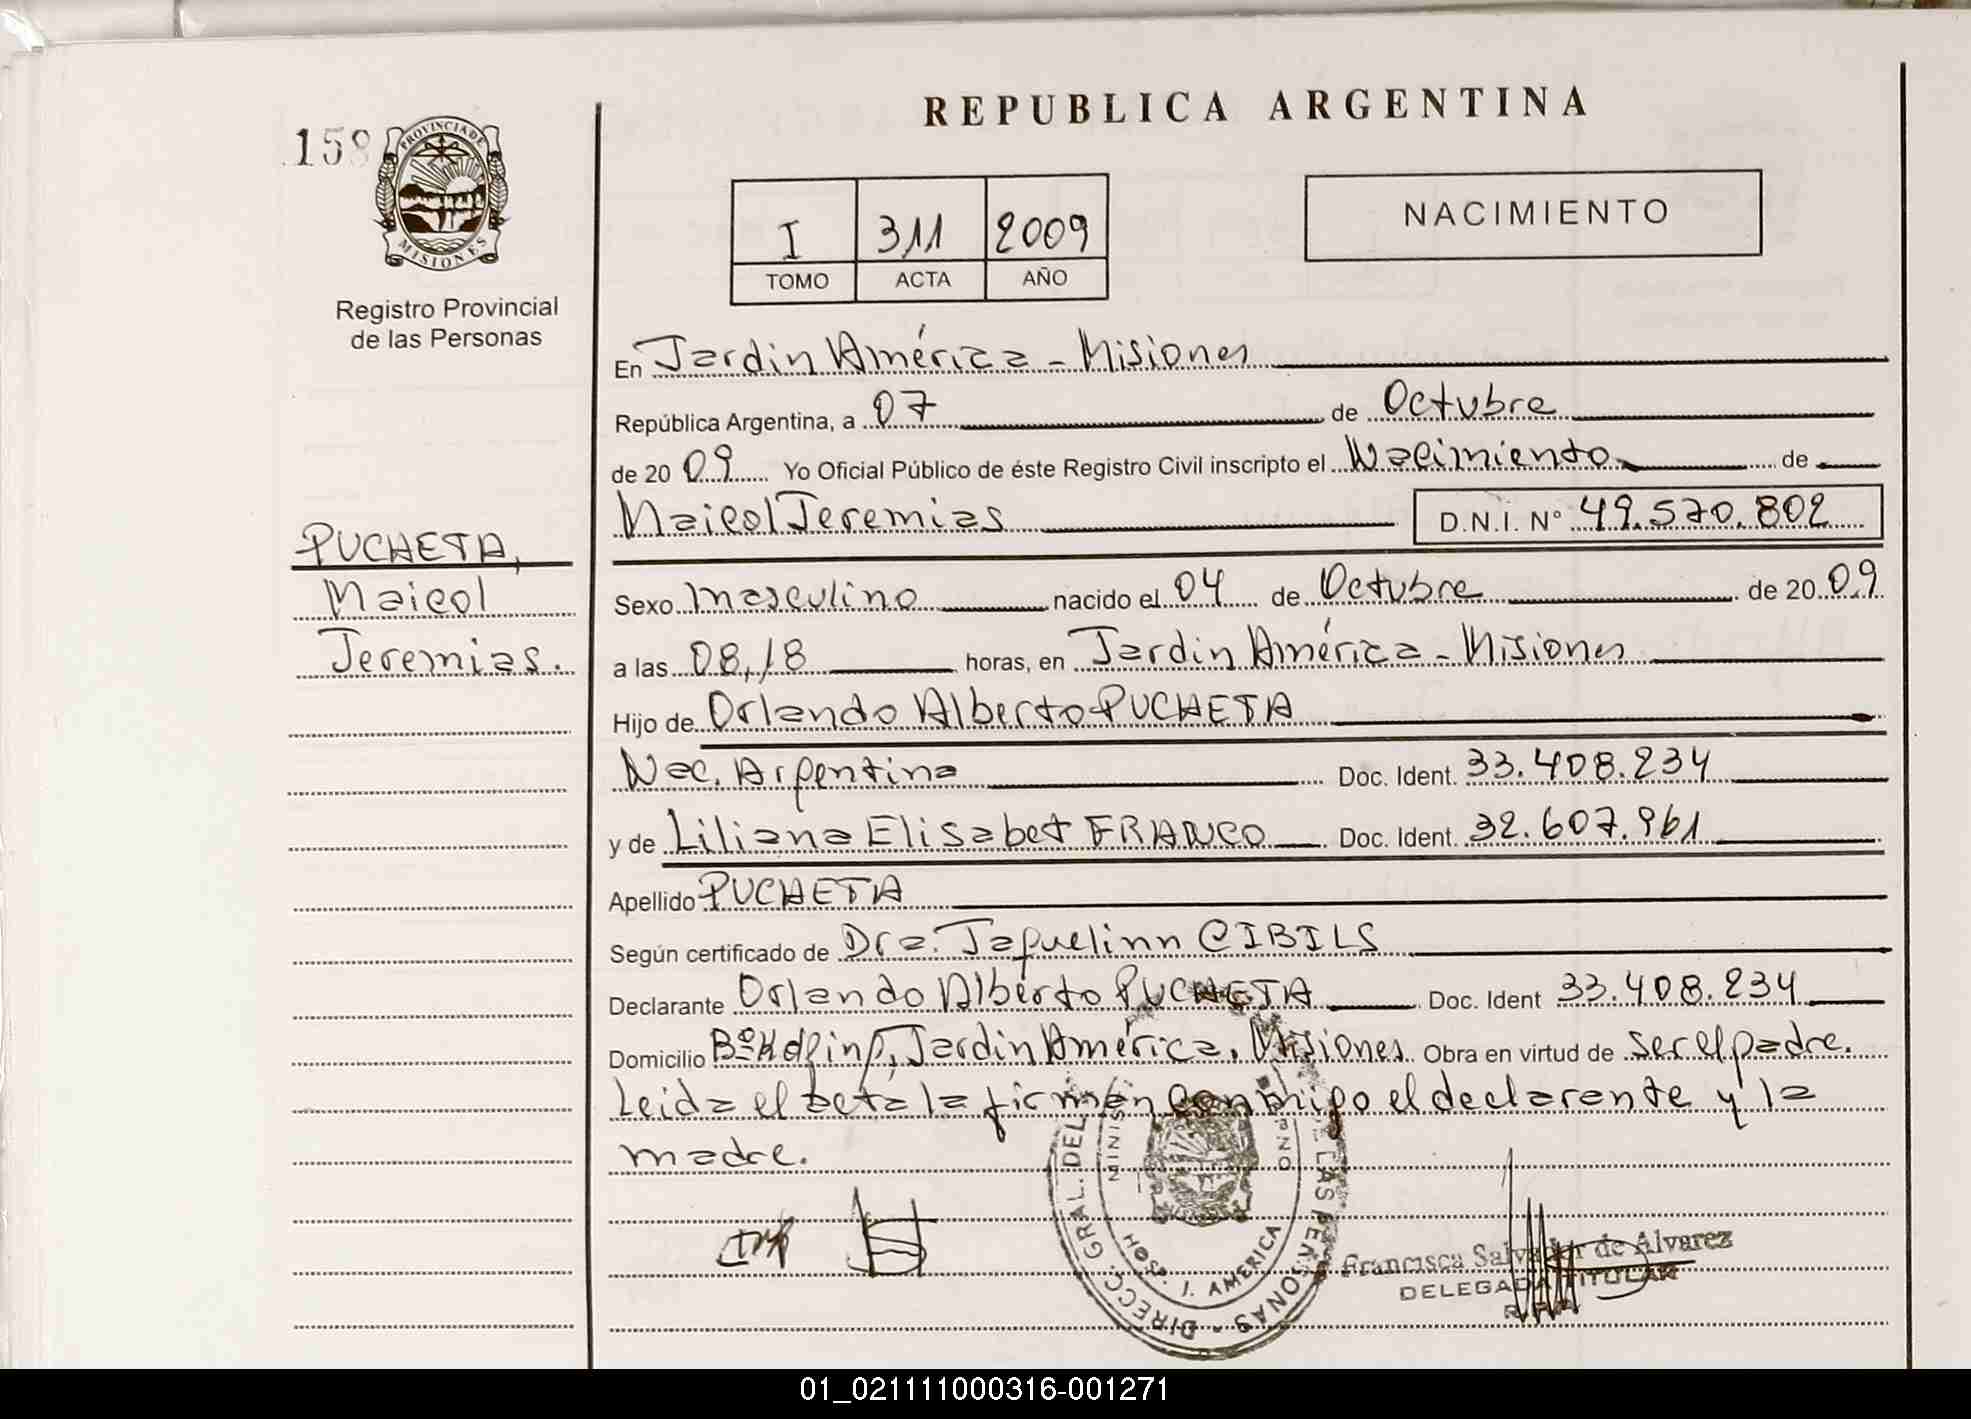 REPUBLICA ARGENTINA
158
PROVINCIA DE
MISIONES
Registro Provincial
de las Personas
I 311 2009
TOMO ACTA AÑO
NACIMIENTO
En Jardin América - Misiones
República Argentina, a 07 de Octubre
de 2009 Yo Oficial Público de éste Registro Civil inscripto el Nacimiento de
Maicol Jeremias D.N.I. Nº 49.570.802
PUCHETA,
Maicol
Jeremias.
Sexo masculino nacido el 04 de Octubre de 2009
a las 08,18 horas, en Jardin América - Misiones
Hijo de Orlando Alberto PUCHETA
Nac. Argentina Doc. Ident. 33.408.234
y de Liliana Elisabet FRANCO Doc. Ident. 32.607.961
Apellido PUCHETA
Según certificado de Dra. Jaquelinn CIBILS
Declarante Orlando Alberto PUCHETA Doc. Ident 33.408.234
Domicilio Bº Jardin América, Misiones Obra en virtud de ser el padre.
Leida el acta la firman conmigo el declarante y la
madre.
DIRECC. GRAL. DEL LAS PERSONAS
HOSP. J. AMERICA
Francisca Salvador de Alvarez
DELEGADA TITULAR
01_021111000316-001271